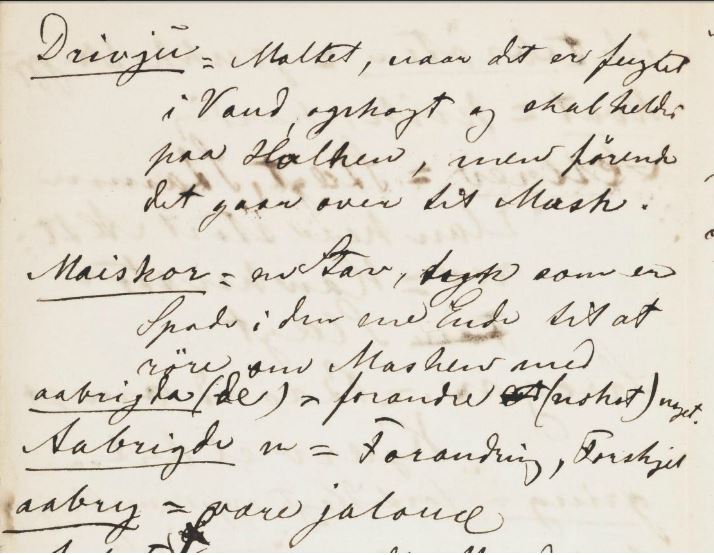 Drivjü = Maltet, naar det er fugtet
i Vand, opkogt og skal heldes
paa Holken, men förend
det gaar over til Mask.
Maiskor = en Stav, som er
Spade i den ene Ende til at
röre om Masken med
aabrigda (de) = forandre (nokot) noget.
Aabrigde n = Forandring, Forskjel
aabry = være jaloux